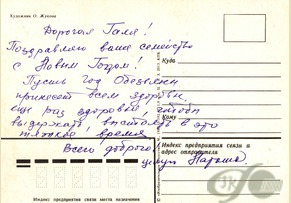 Художник О. Жукова
Дорогая Галя!
Поздравляю ваше семейство
с Новым Годом!
Пусть Год Обезьяны
принесет всем здоровья,
еще раз здоровья, чтобы
выдержать, выстоять в это
тяжкое время
Всего доброго,
целую Наташа.
Куда
Кому
Индекс предприятия связи и
адрес отправителя
Индекс предприятия связи места назначения